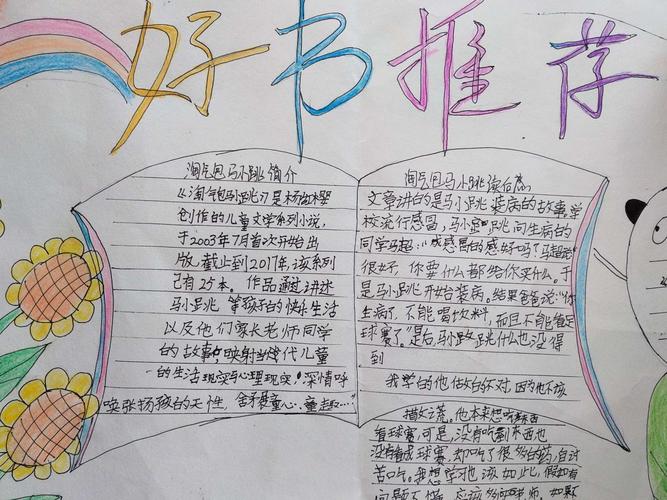 好书推荐
淘气包马小跳简介
《淘气包马小跳》是杨红樱
创作的儿童文学系列小说,
于2003年7月首次开始出
版,截止到2017年,该系列
已有25本。作品通过讲述
马小跳等孩子的快乐生活
以及他们家长老师同学
的故事,映射当代儿童
的生活现实与心理现实,深情呼
唤张扬孩的天性,舍不得童心、童趣……
淘气包马小跳读后感
文章讲的是马小跳装病的故事,学
校流行感冒,马小跳问生病的
同学马超:"感冒的感好吗?"马超说
很好,你要什么都给你买什么。于
是马小跳开始装病。结果爸爸说:"你
生病了,不能喝饮料,而且不能看足
球赛了。"最后,马小跳什么也没得
到
我学的他做的不对,因为他不该
撒谎。他本来想吃东西
看球赛,可是,没有吃到东西也
没有看成球赛,却吃了很多的药,自讨
苦吃。我想学习也该如此,假如有
问题不懂,应该